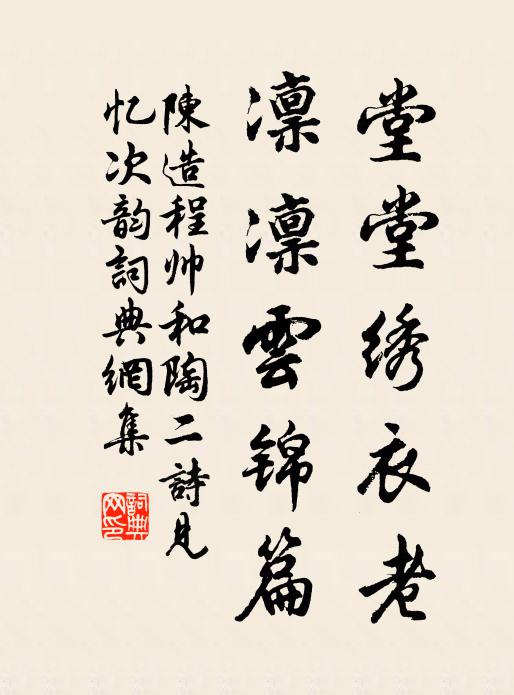 堂堂绣衣老
凛凛雲锦篇
陳造程帅和陶二詩見
忆次韵詞典網集
詞典网印